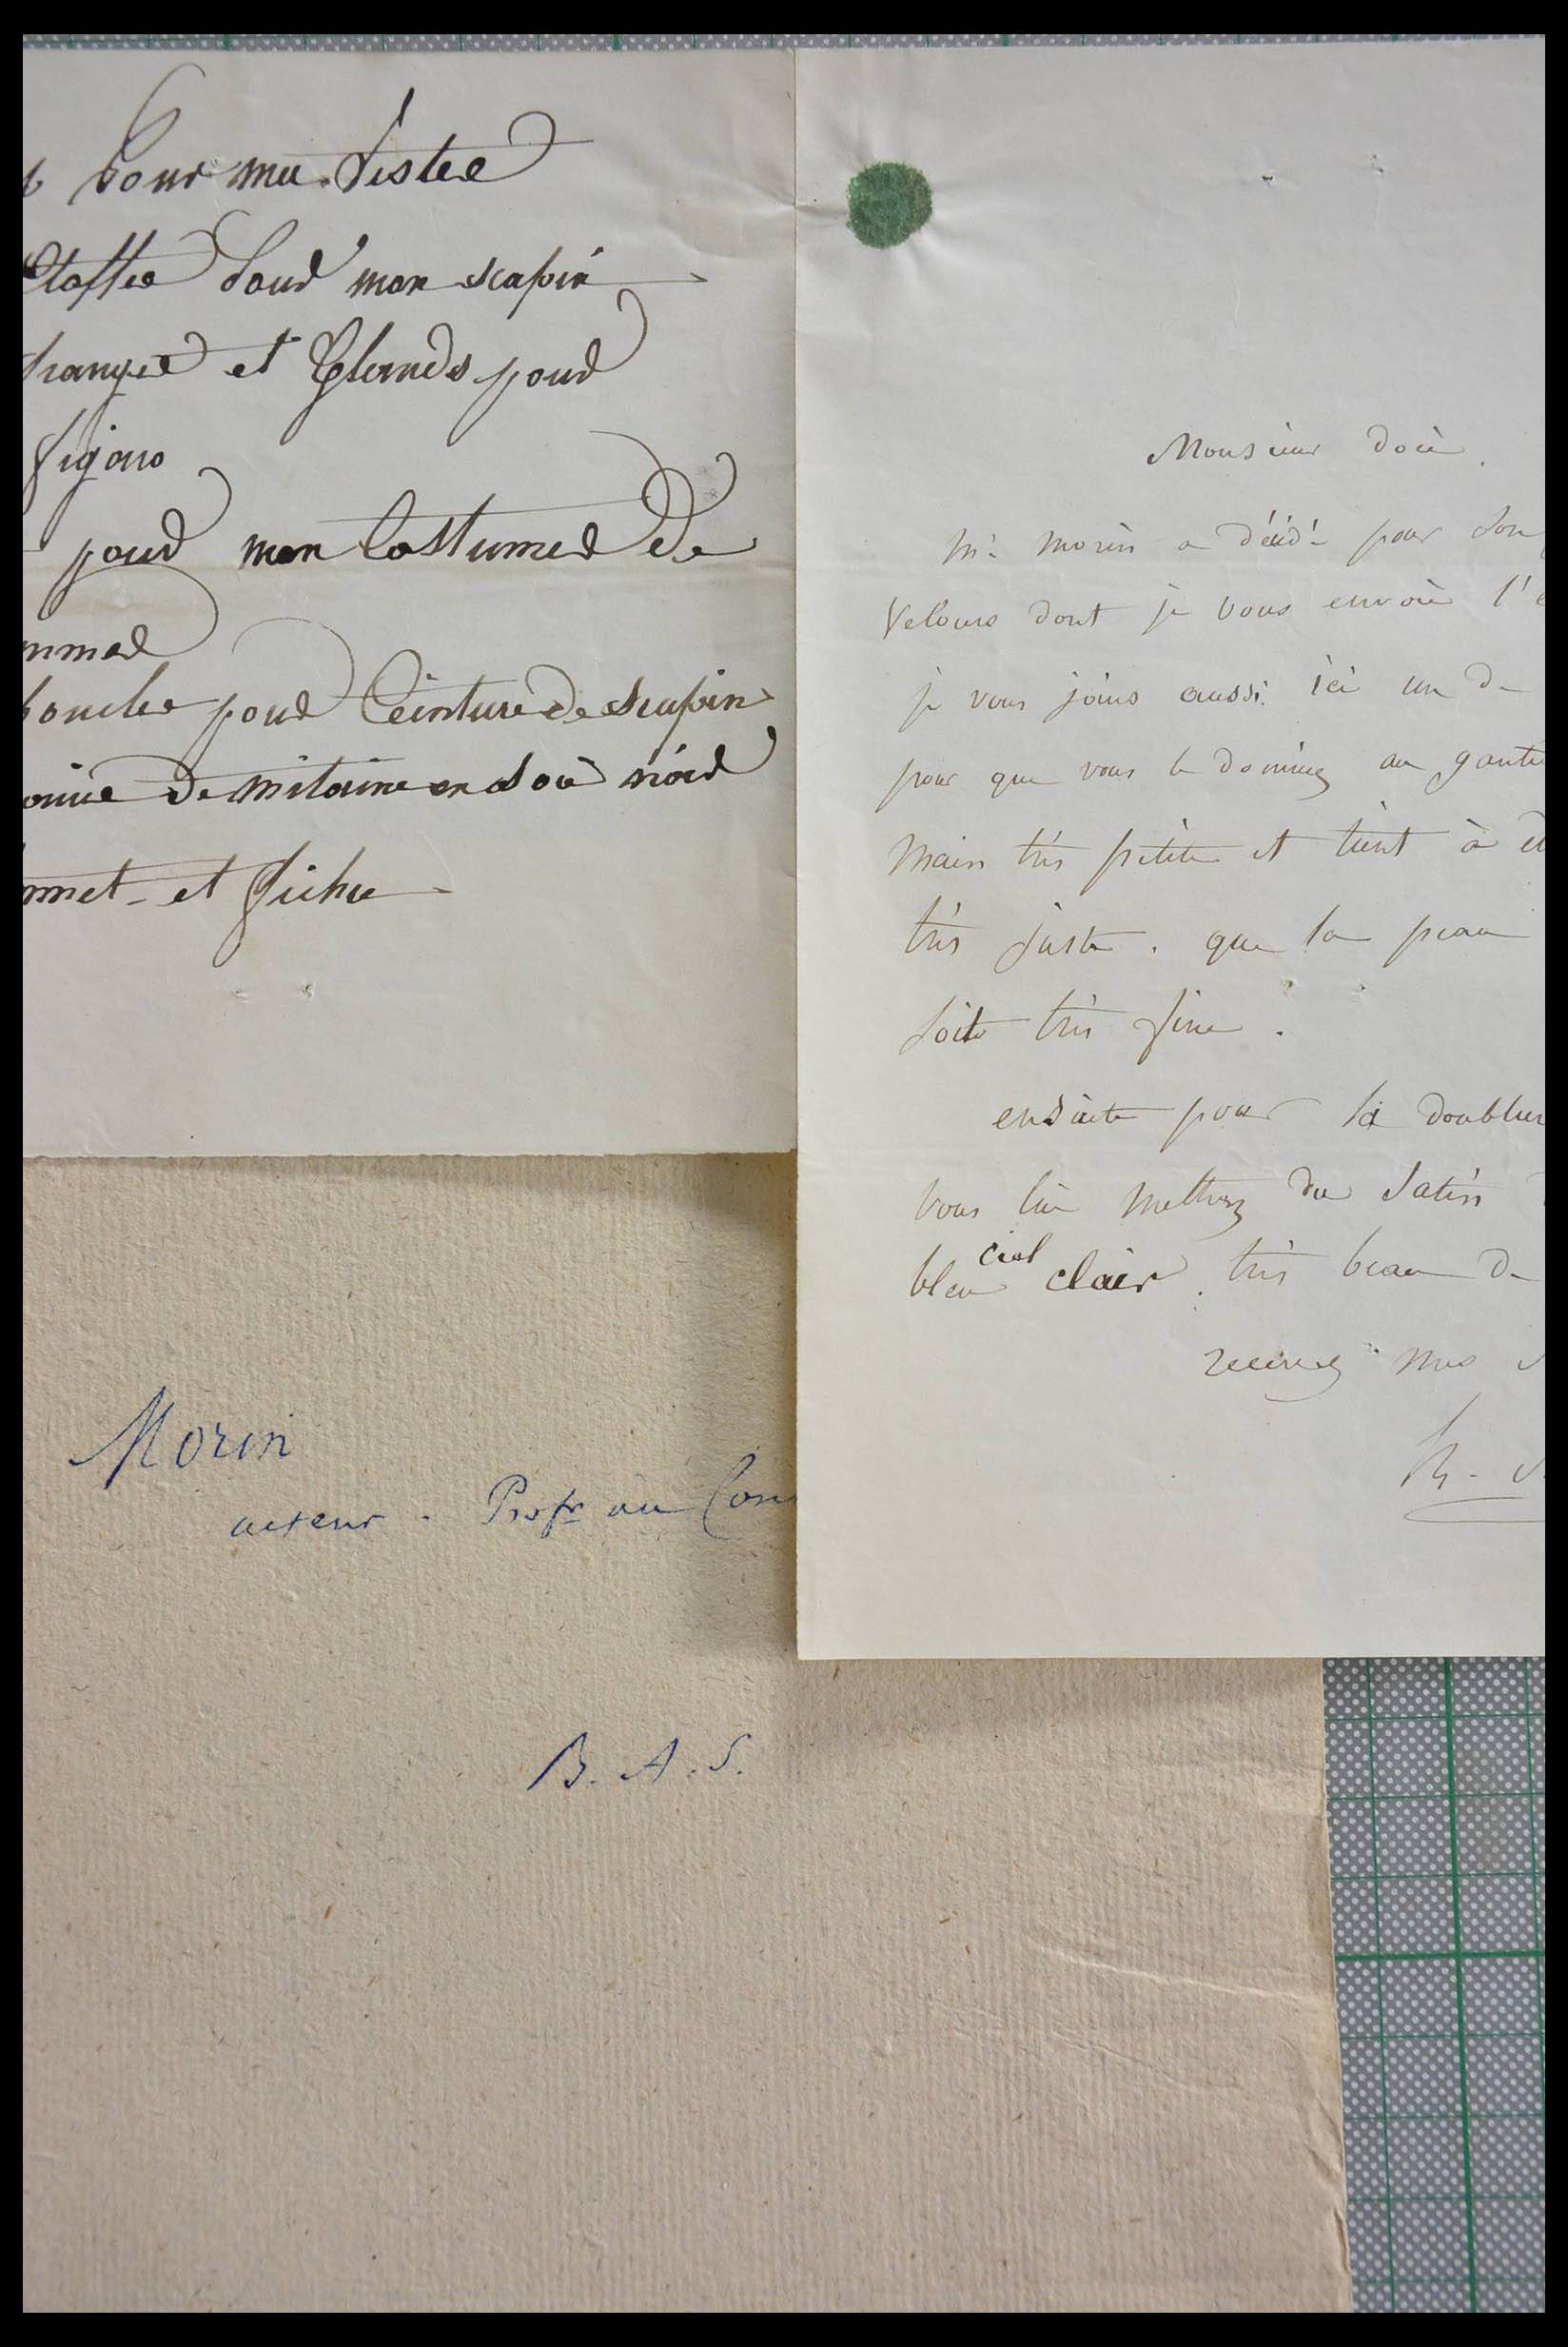 pour ma veste
Etoffe pour mon scapin
frange et Glands pour
figaro
pour mon Costume de
pour Ceinture de scapin
de mitaine en Soie noire
et fichu
Monsieur doié.
Mr morin a décidé pour son
Velours dont je vous envoie l'é
je vous joins aussi ici un de
pour que vous le donniez au gantie
main très petite et tient à êt
très juste. que la peau
soit très fine.
ensuite pour la doublur
vous lui mettrez du Satin
bleu ciel clair. très beau de
recevez mes s
Morin
acteur. Profr au Con
B. A. S.